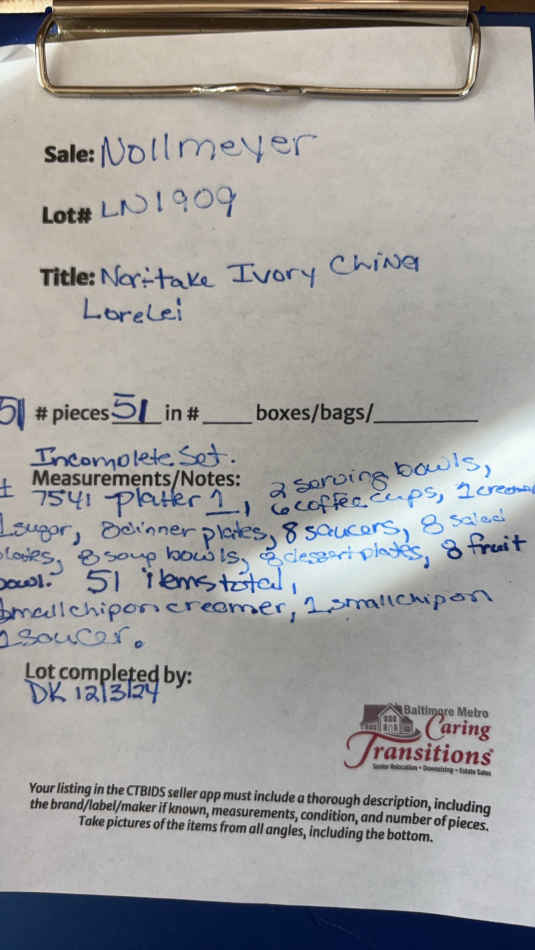 Sale: Nollmeyer
Lot# LN1909
Title: Noritake Ivory China
Lorelei
51 # pieces 51 in # ____ boxes/bags/__________
Incomplete Set.
Measurements/Notes: 2 serving bowls,
7541 platter 1, 6 coffee cups, 1 creamer
1 sugar, 8 dinner plates, 8 saucers, 8 salad
plates, 8 soup bowls, 8 dessert plates, 8 fruit
bowl. 51 items total,
small chip on creamer, 1 small chip on
1 saucer.
Lot completed by:
DK 12/3/24
Baltimore Metro
Caring
Transitions
Senior Relocation • Downsizing • Estate Sales
Your listing in the CTBIDS seller app must include a thorough description, including
the brand/label/maker if known, measurements, condition, and number of pieces.
Take pictures of the items from all angles, including the bottom.